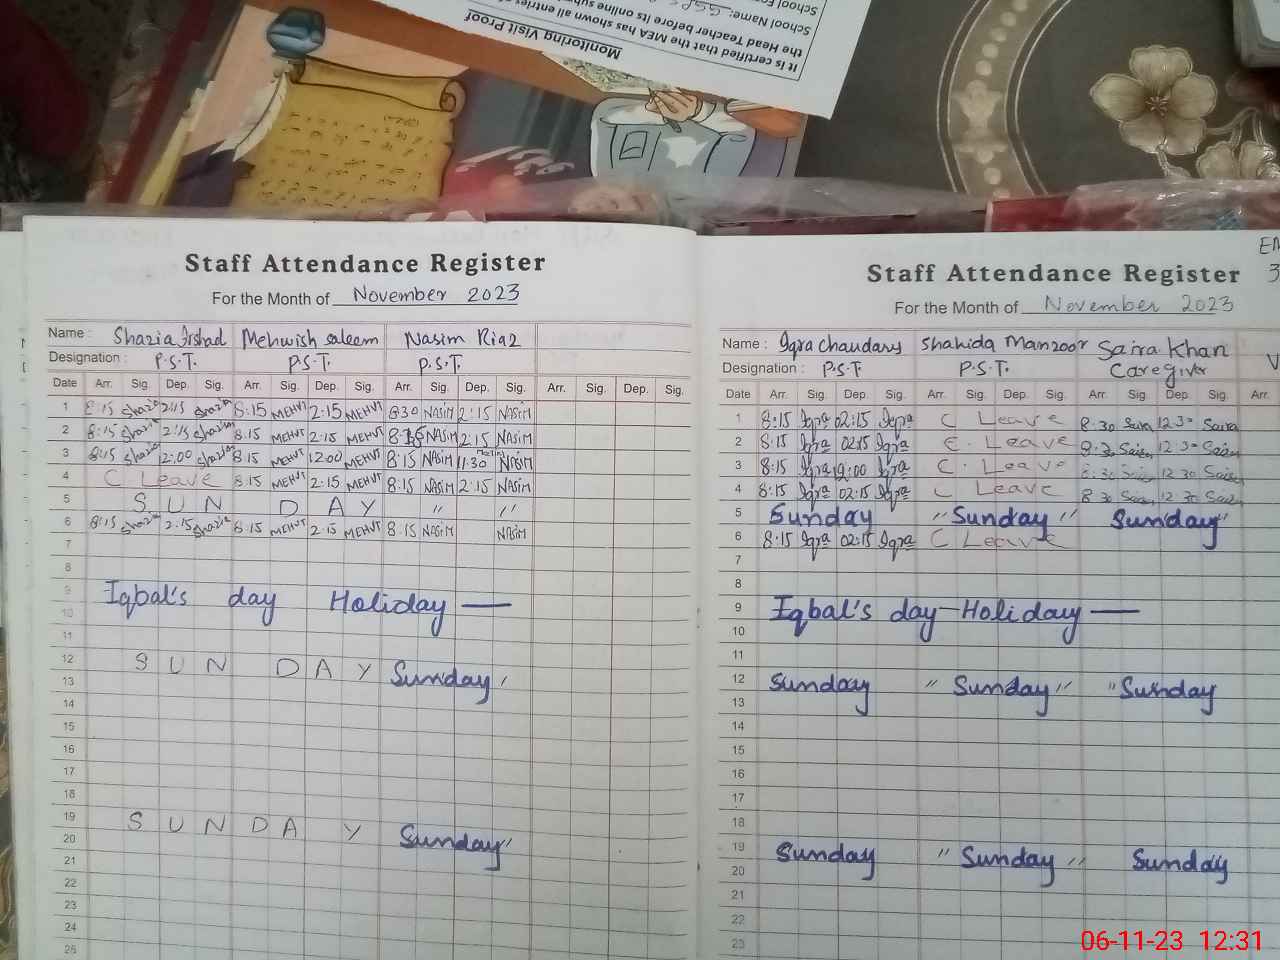 School Name: GGPS
the Head Teacher before its online sub
It is certified that the MEA has shown all entries
Monitoring Visit Proof
Staff Attendance Register
For the Month of November 2023
Name : Shazia Irshad Mehwish saleem Nasim Riaz
Designation : P.S.T. P.S.T. P.S.T.
Date Arr. Sig. Dep. Sig. Arr. Sig. Dep. Sig. Arr. Sig. Dep. Sig. Arr. Sig. Dep. Sig.
1 8:15 Shazia 2:15 Shazia 8:15 MEHVI 2:15 MEHVI 8:30 NASIM 2:15 NASIM
2 8:15 Shazia 2:15 Shazia 8:15 MEHVI 2:15 MEHVI NASIM 2:15 NASIM
3 8:15 Shazia 12:00 Shazia 8:15 MEHVI 12:00 MEHVI 8:15 NASIM 11:30 NASIM
4 C Leave 8:15 MEHVI 2:15 MEHVI 8:15 NASIM 2:15 NASIM
5 S U N D A Y " "
6 8:15 Shazia 2:15 Shazia 8:15 MEHVI 2:15 MEHVI 8:15 NASIM NASIM
7
8
9 Iqbal's day Holiday —
10
11
12 S U N D A Y Sunday "
13
14
15
16
17
18
19 S U N D A Y Sunday "
20
21
22
23
24
25
EM
3
Staff Attendance Register
For the Month of November 2023
Name : Iqra Chaudary Shahida Manzoor Saira Khan
Designation : P.S.T P.S.T. Caregiver V
Date Arr. Sig. Dep. Sig. Arr. Sig. Dep. Sig. Arr. Sig. Dep. Sig. Arr.
1 8:15 Iqra 02:15 Iqra C Leave 8:30 Saira 12:30 Saira
2 8:15 Iqra 02:15 Iqra C. Leave 8:30 Saira 12:30 Saira
3 8:15 Iqra 12:00 Iqra C. Leave 8:30 Saira 12:30 Saira
4 8:15 Iqra 02:15 Iqra C Leave 8:30 Saira 12:30 Saira
5 Sunday " Sunday " Sunday "
6 8:15 Iqra 02:15 Iqra C Leave
7
8
9 Iqbal's day Holiday —
10
11
12 Sunday " Sunday " " Sunday
13
14
15
16
17
18
19 Sunday " Sunday " Sunday
20
21
22
23
06-11-23 12:31